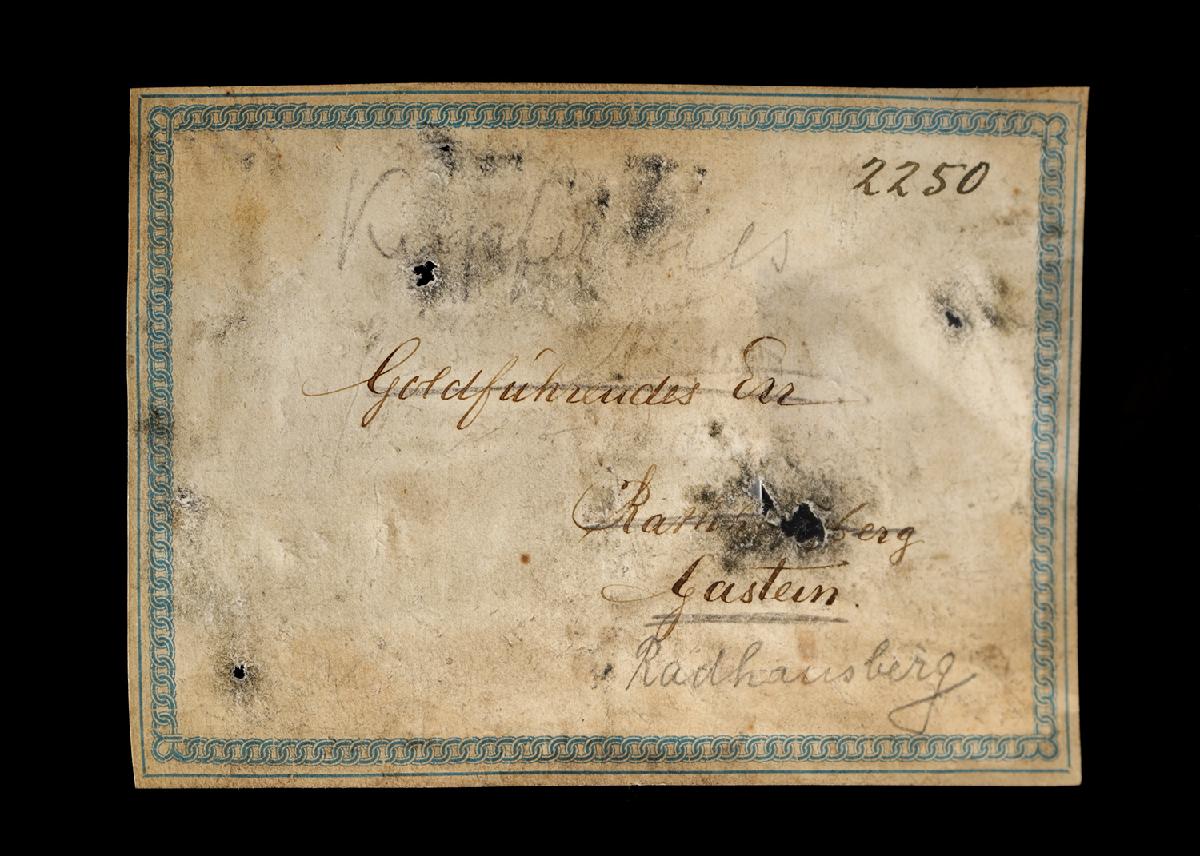 2250
Kupferkies
Goldführendes Erz
Gastein.
Radhausberg